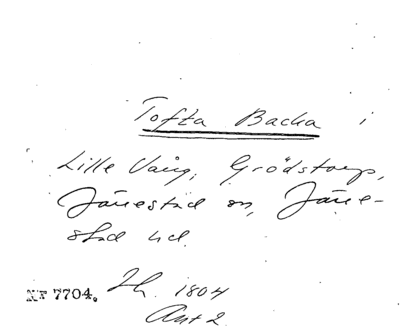 Tofta Backa i
Lille Vång, Grödstorp,
Järrestad sn, Järre-
stad hd.
NF 7704. Sk. 1804
Akt 2